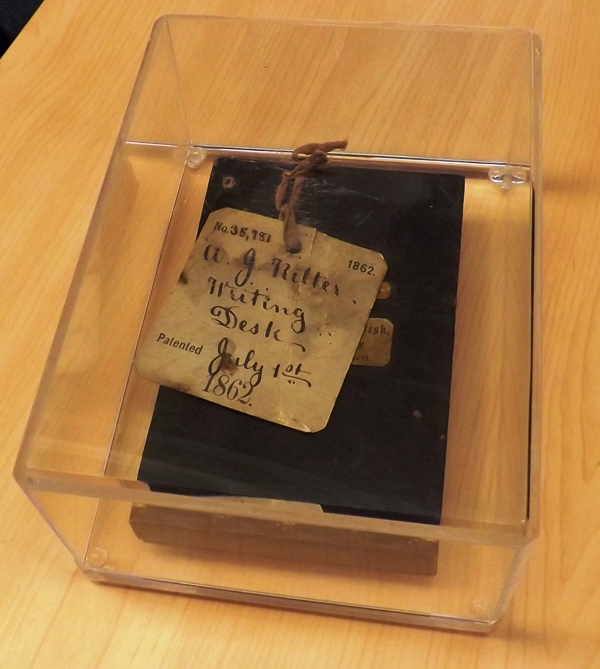 No. 35,781 1862.
W. G. Ritter.
Writing
Desk
Patented July 1st
1862.
Desk,